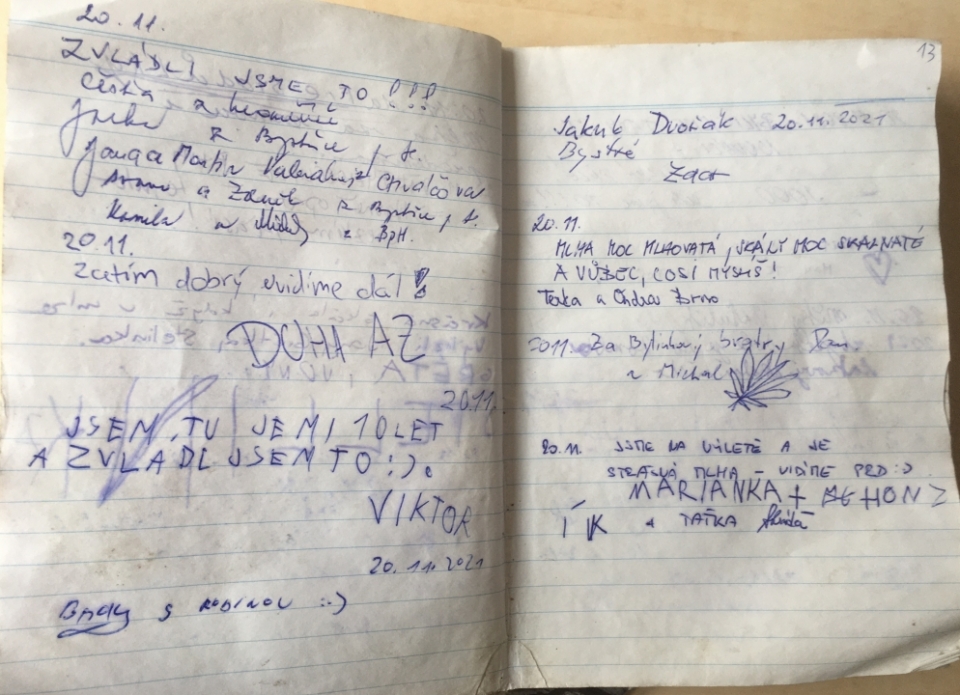 20.11.
ZVLÁDLI JSME TO!!!
z Bystřice p. H.
Jarka Martin Chvalčova
a Zdeněk z Bystřice p. H.
Kamila a z BpH.
20.11.
Zatím dobrý uvidíme dál!
DOHA AZ
20.11.
JSEM TU JE MI 10 LET
A ZVLADL JSEM TO :).
VIKTOR
20.11.2021
S RODINOU :-)
13
Jakub Dvořák 20.11.2021
Bystré
Zdar
20.11.
MLHA MOC MLHOVATÁ, SKÁLY MOC SKALNATÉ
A VŮBEC, COSI MYSLÍŠ!
Terka a Ondra Brno
20.11 Za Bylinkový bratry
a Michal
20.11. JSME NA VÝLETĚ A JE
STRAŠNÁ MLHA - VIDÍME PRD :-)
MARIANKA + HONZ
ÍK a TAŤKA